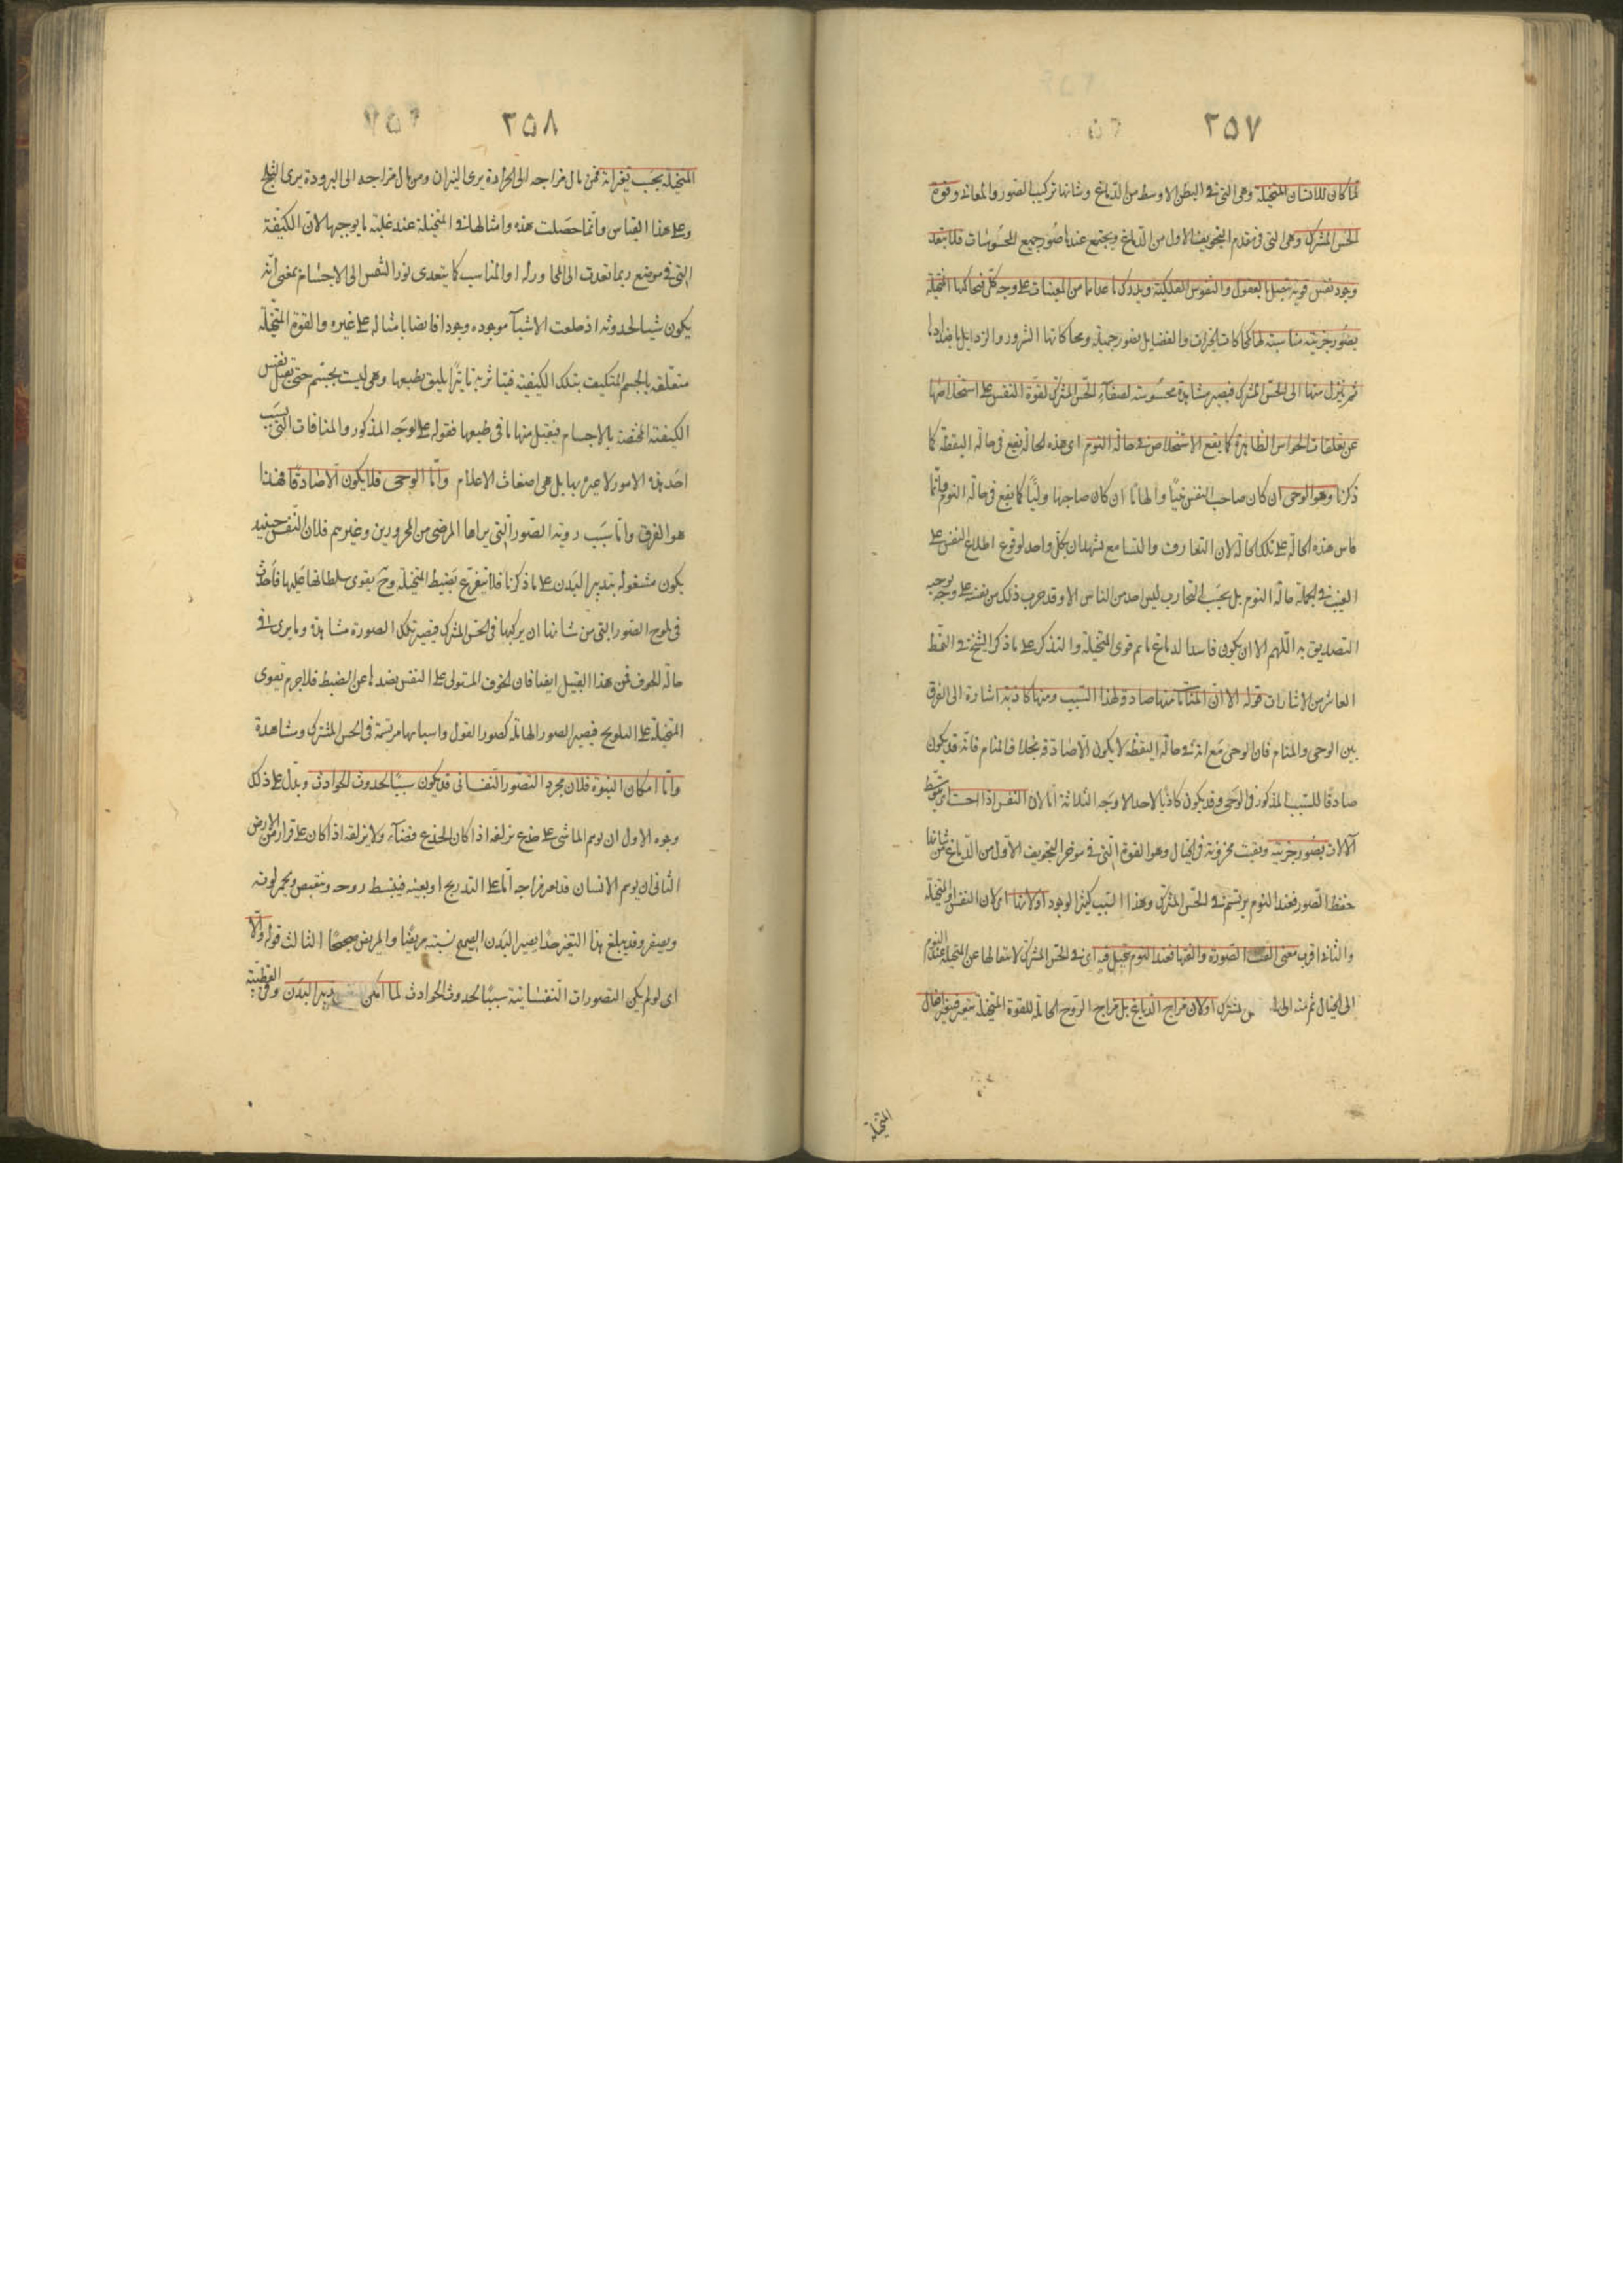 ٢٥٧
لما كان للانسان المتخيلة وهى التى فى البطن الاوسط من الدماغ وشانها تركيب الصور والمعانى وقوة
الحس المشترك وهى التى فى مقدم التجويف الاول من الدماغ ويجتمع عندها صور جميع المحسوسات فلا يبعد
وجود نفس قوية تتصل بالعقول والنفوس الفلكية ويدرك ما عندها من المغيبات على وجه كلى فتحاكيها المتخيلة
بصور جزئية مناسبة لها كمحاكات الخيرات والفضايل بصور جميلة ومحاكاتها الشرور والرذايل باضدادها
ثم تنزل منها الى الحس المشترك فيصير مشاهدة محسوسة لصفاء الحس المشترك لقوة النفس على استخلاصها
عن تعلقات الحواس الظاهرة كما يقع الاستخلاص فى حالة النوم اى هذه الحالة يقع فى حالة اليقظة كما
ذكرنا وهو الوحى ان كان صاحب النفس نبيا والهاما ان كان صاحبها وليا كما يقع فى حالة النوم وانما
قاس هذه الحالة على تلك الحالة لان التعارف والتسامع يشهدان بكل واحد لوقوع اطلاع النفس على
الغيب فى الجملة حالة النوم بل بحسب التجارب ليس احد من الناس الا وقد جرب ذلك من نفسه على وجه يوجب
التصديق به اللهم الا ان يكون فاسد الدماغ نايم قوى المتخيلة والتذكر على ما ذكر الشيخ فى النمط
العاشر من الاشارات قوله الا ان المنامات منها صادقة لهذا السبب ومنها كاذبة اشارة الى الفرق
بين الوحى والمنام فان الوحى مع انه فى حالة اليقظة لا يكون الا صادقة بخلاف المنام فانه قد يكون
صادقا للسبب المذكور فى الوحى وقد يكون كاذبا لاحد الاوجه الثلاثة اما لان النفس اذا احست اى بتوسط
الآلات بصور جزئية وبقيت مخزونة فى الخيال وهو القوة التى فى موخر التجويف الاول من الدماغ من شانها
حفظ الصور فعند النوم يرتسم فى الحس المشترك وهذا السبب كثير الوجود او لانها اى لان النفس او المتخيلة
والثانى اقرب معنى الفت الصورة والفتها فعند النوم تتخيل فيه اى فى الحس المشترك لانتقالها عن المتخيلة عند النوم
الى الخيال ثم منه الى المشترك او لان مزاج الدماغ بل مزاج الروح الحاملة للقوة المتخيلة يتغير فيتغير افعال
المتخيلة
٢٥٨
المتخيلة بحسب تغيراته فمن مال مزاجه الى الحرارة يرى النيران ومن مال مزاجه الى البرودة يرى الثلج
وعلى هذا القياس وانما حصلت هذه وامثالها فى المتخيلة عند غلبة ما يوجبها لان الكيفية
التى فى موضع ربما تعدت الى المجاور له او المناسب كما يتعدى نور الشمس الى الاجسام بمعنى انه
يكون سببا لحدوثه اذ خلقت الاشياء موجودة وجودا فايضا بامثاله على غيره والقوة المتخيلة
متعلقة بالجسم المتكيف بتلك الكيفية فيتاثر به تاثرا يليق بطبعها وهى ليست بجسم حتى تقبل نفس
الكيفية المختصة بالاجسام فيقبل منها ما فى طبعها فقوله على الوجه المذكور والمنافات التى بسبب
احد هذه الامور لا عبرة بها بل هى اضغاث الاحلام واما الوحى فلا يكون الا صادقا فهذا
هو الفرق واما سبب روية الصور التى يراها المرضى من المحرورين وغيرهم فلان النفس حينئذ
يكون مشغولة بتدبير البدن على ما ذكرنا فلا تتفرغ بضبط المتخيلة وح يقوى سلطانها عليها فاخذت
فى تلوح الصور التى من شانها ان يركبها فى الحس المشترك فيصير تلك الصورة مشاهدة وما يرى فى
حالة الخوف فمن هذا القبيل ايضا فان الخوف المستولى على النفس يصدها عن الضبط فلا جرم تقوى
المتخيلة على التلويح فيصير الصور الهايلة كصور الغول واسبابها مرتسمة فى الحس المشترك ومشاهدة
واما امكان النبوة فلان مجرد التصور النفسانى قد يكون سببا لحدوث الحوادث ويدل على ذلك
وجوه الاول ان توهم الماشى على جذع يزلقه اذا كان الجذع فضاء ولا يزلقه اذا كان على قرار من الارض
الثانى ان توهم الانسان قد يغير مزاجه اما على التدريج او بغتة فينبسط روحه وينقبض ويحمر لونه
ويصفر وقد يبلغ هذا التغير حدا يصير البدن الصحيح بسببه مريضا والمريض صحيحا الثالث قوله والا
اى لو لم يكن التصورات النفسانية سببا لحدوث الحوادث لما امكن تدبير البدن وفى القطبية